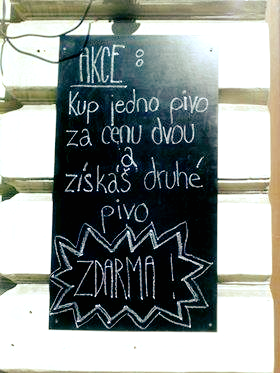 AKCE:
Kup jedno pivo
za cenu dvou
a
získáš druhé
pivo
ZDARMA!